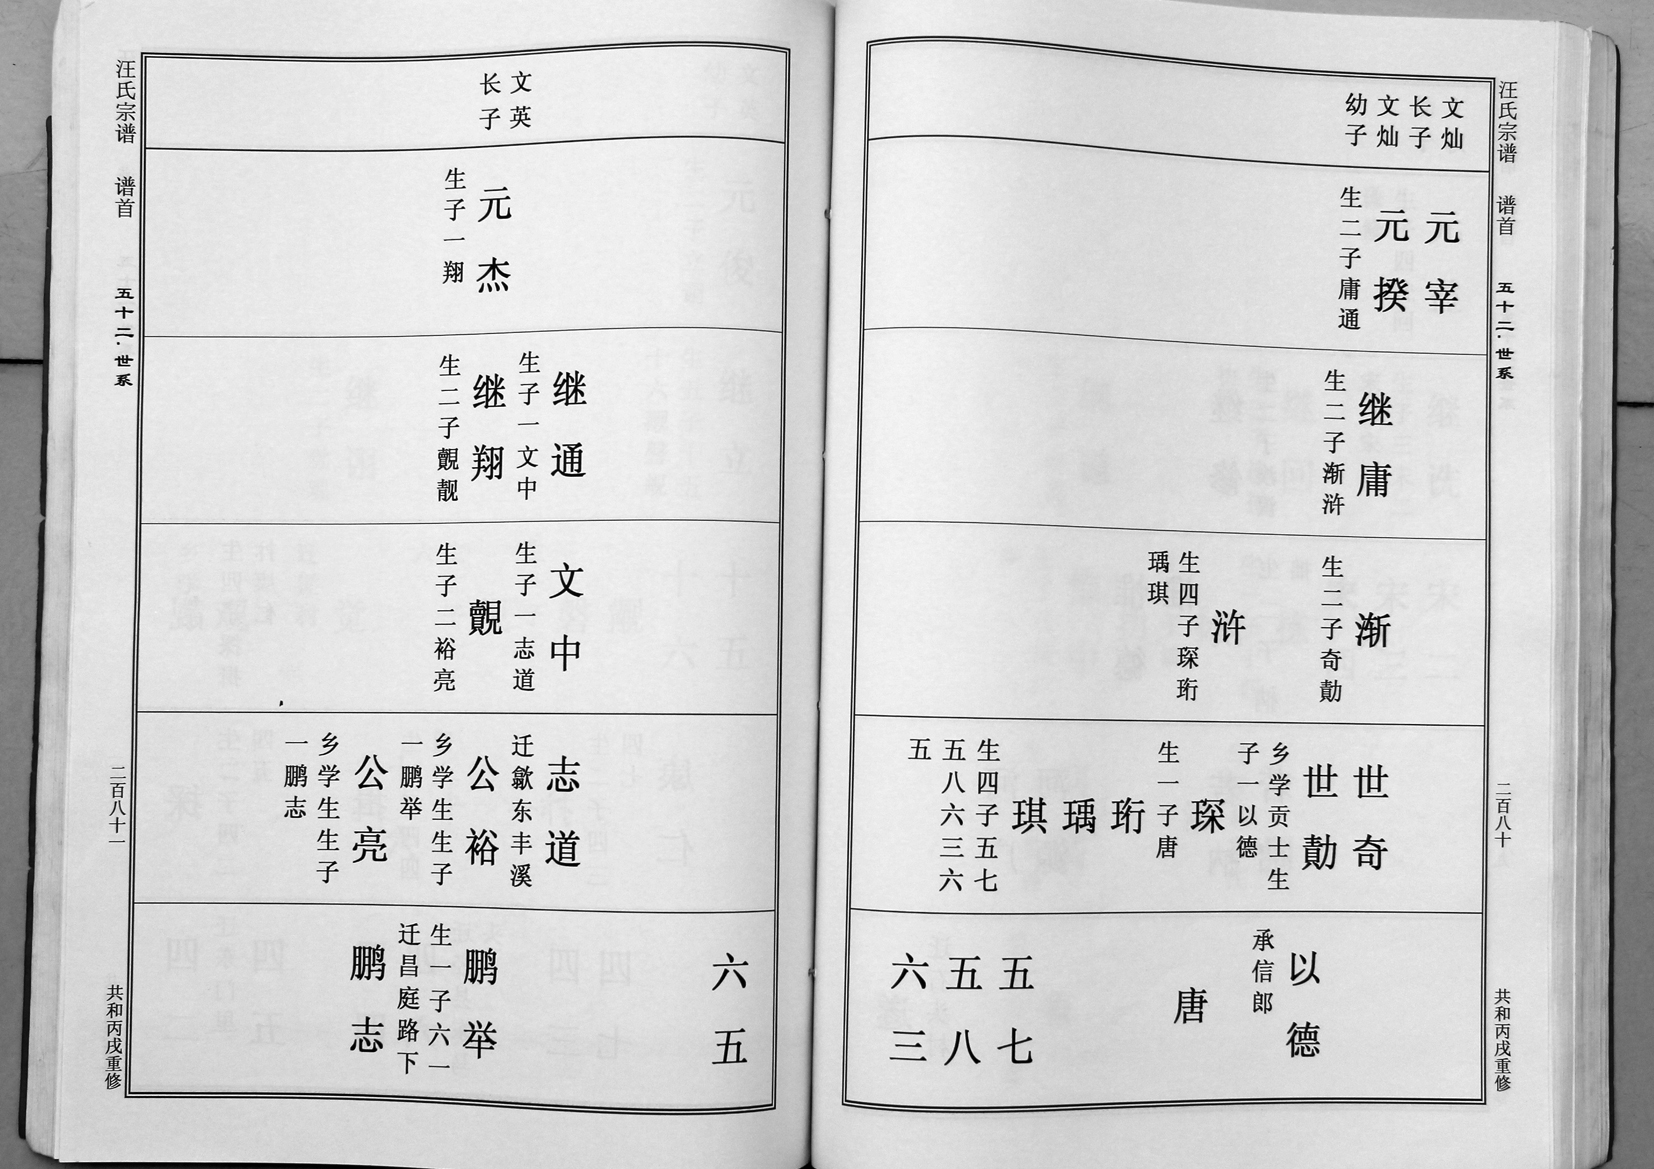 汪氏宗谱 谱首 五十二·世系 二百八十 共和丙戌重修
文灿
长子
文灿
幼子
元宰
元揆
生二子庸通
继庸
生二子渐浒
渐
生二子奇勣
浒
生四子琛珩
瑀琪
世奇
世勣
乡学贡士生
子一以德
琛
生一子唐
珩
瑀
琪
生四子五七
五八六三六
五
以德
承信郎
唐
五七
五八
六三
文英
长子
元杰
生子一翔
继通
生子一文中
继翔
生二子覿靓
文中
生子一志道
覿
生子二裕亮
志道
迁歙东丰溪
公裕
乡学生生子
一鹏举
公亮
乡学生生子
一鹏志
六五
鹏举
生一子六一
迁昌庭路下
鹏志
汪氏宗谱 谱首 五十二·世系 二百八十一 共和丙戌重修